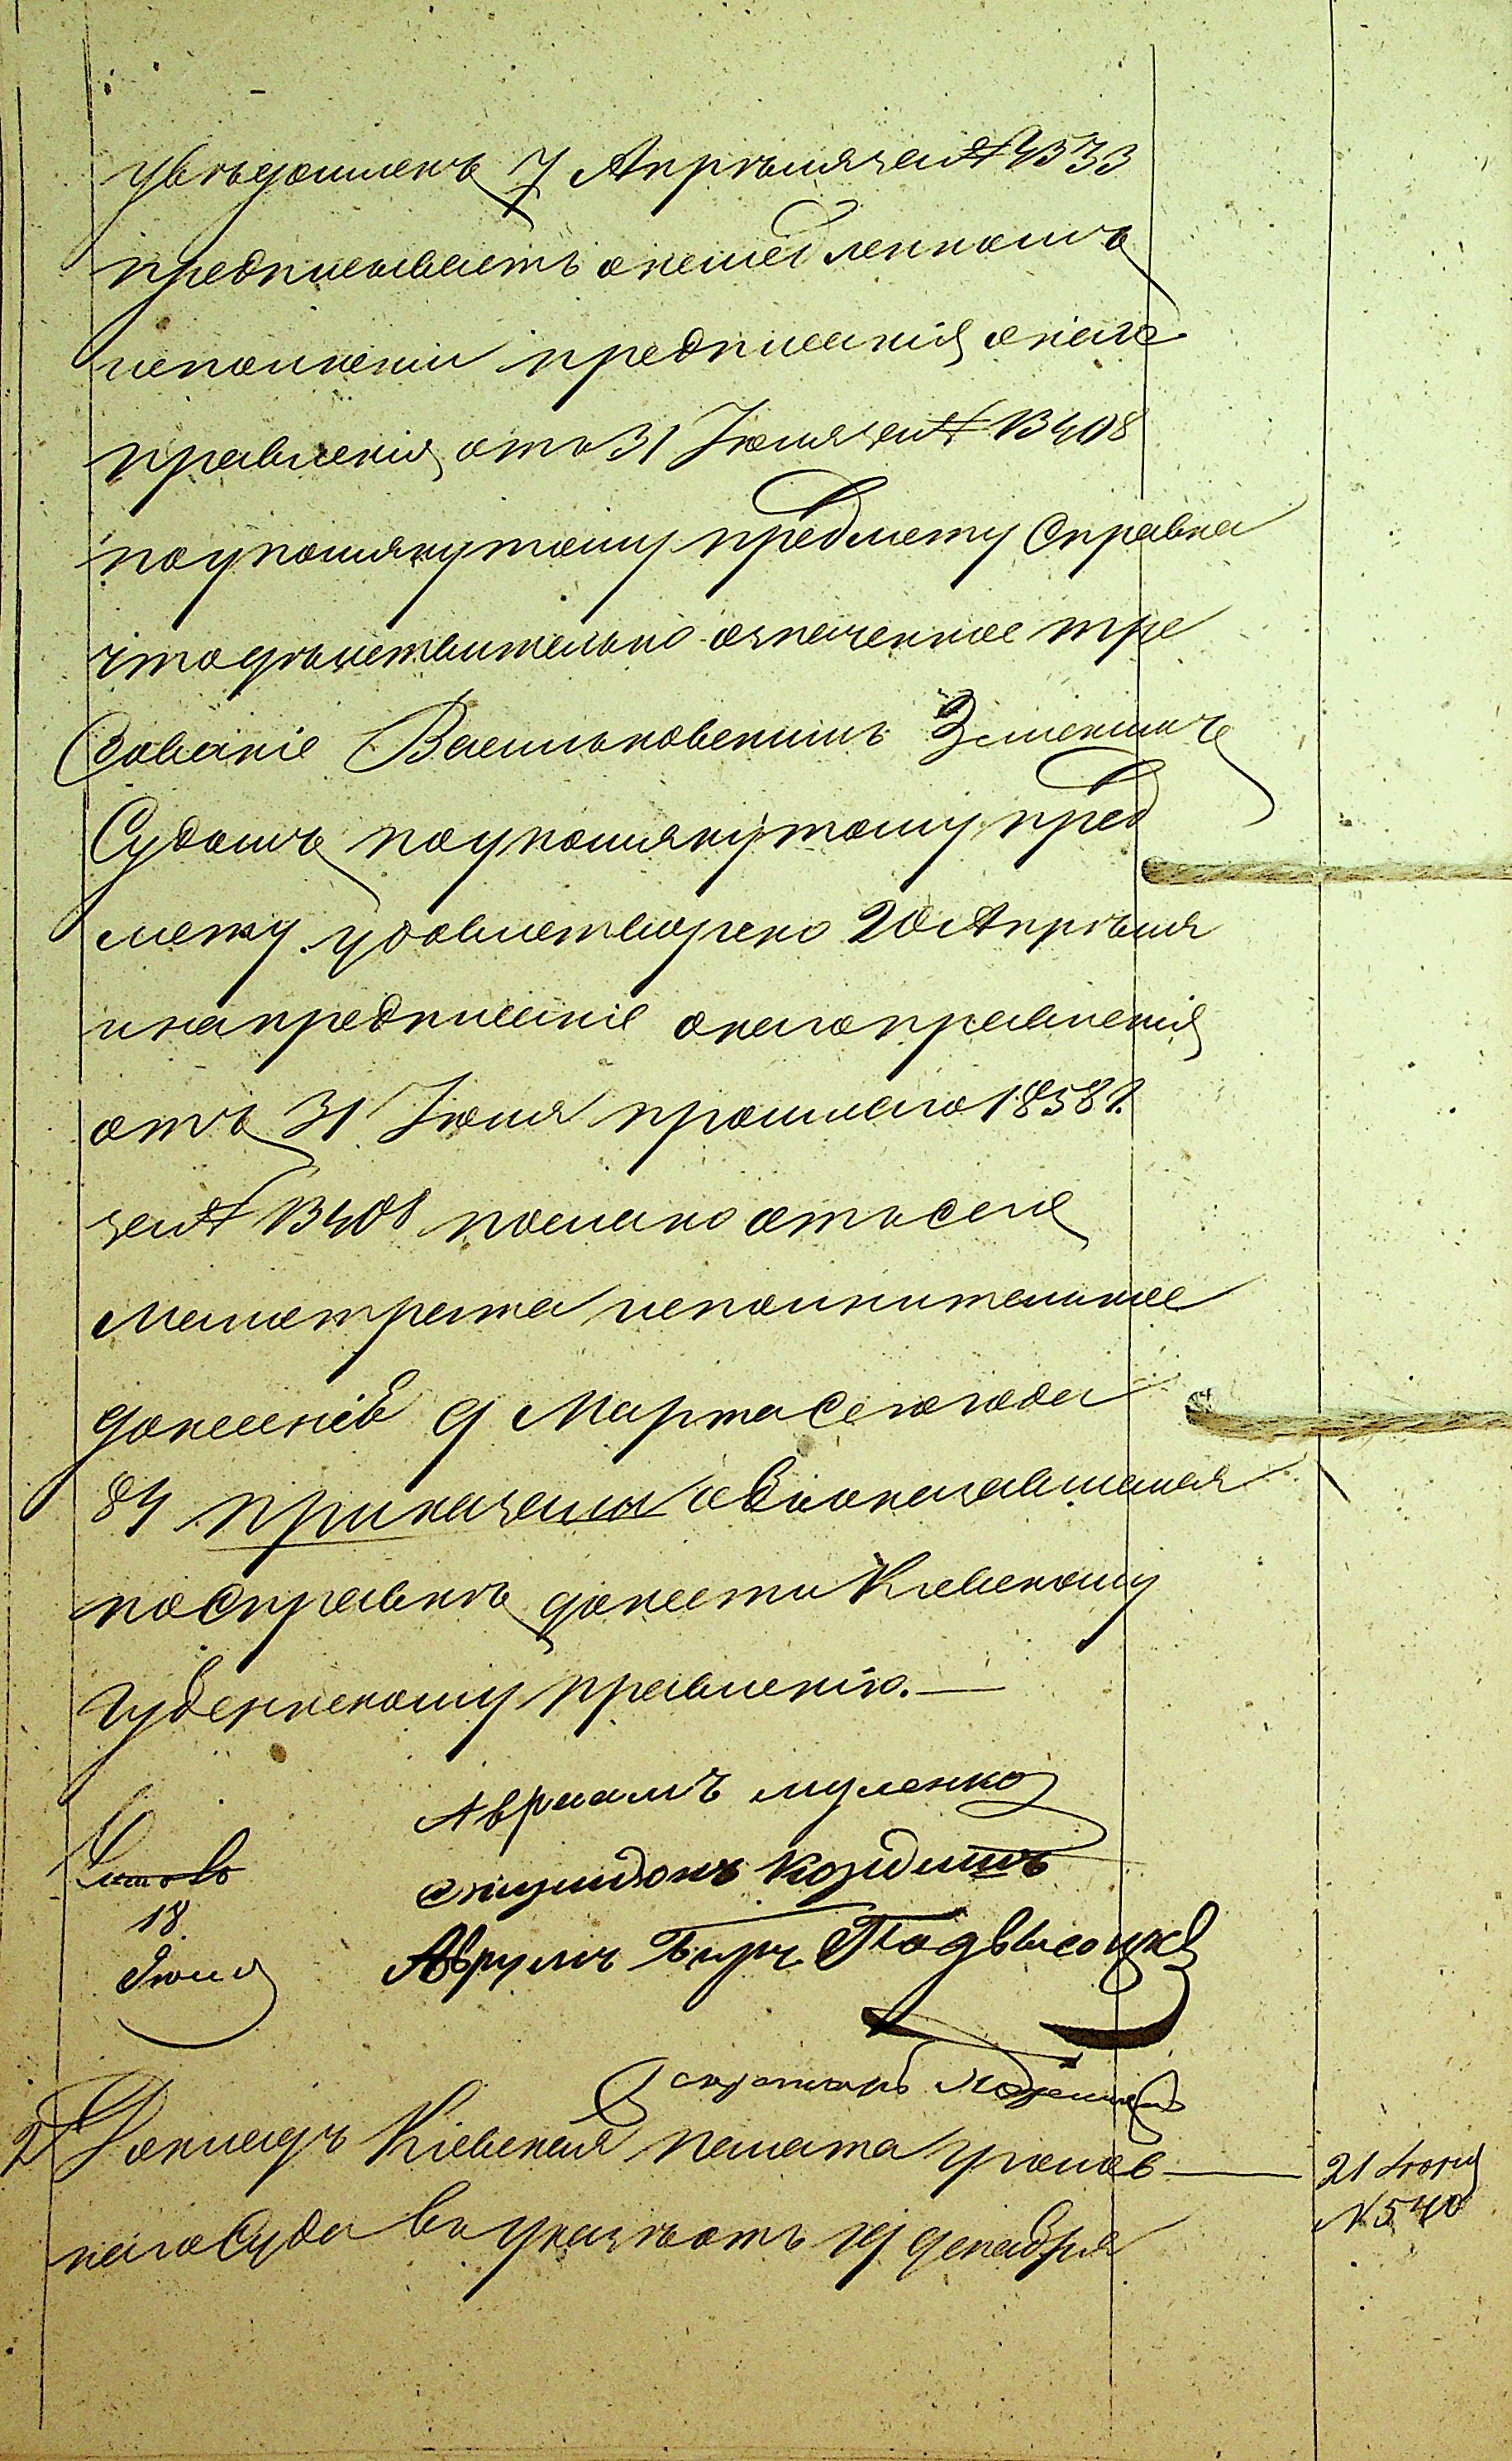 увѣдомленъ 7 Апрѣля за № 4533
предписываетъ онемедленномъ
исполненіи предписанія онаго
правленія отъ 31 Іюля за № 13408
поупомянутому предмету Справка
что дѣйствительно означенное тре
бованіе Васильковскимъ Земскимъ
Судомъ поупомянутому пред
мету удовлетворено 20 Апрѣля
и на предписаніе онаго правленія
отъ 31 Іюля прошлаго 1858 г.
за № 13408 послано отъ сего
Магистрата исполнительное
донесеніе 9 Марта сего года
84 приказали объ оказавшемся
по Справкѣ донести Кіевскому
Губернскому правленію.
Авраамъ
18
Іюня
Аврумъ Берѣ Подвысоцкій
Секретарь
2 Докладъ Кіевская палата уголов
наго Суда въ указѣ отъ 19 декабря
21 Іюня
№ 540